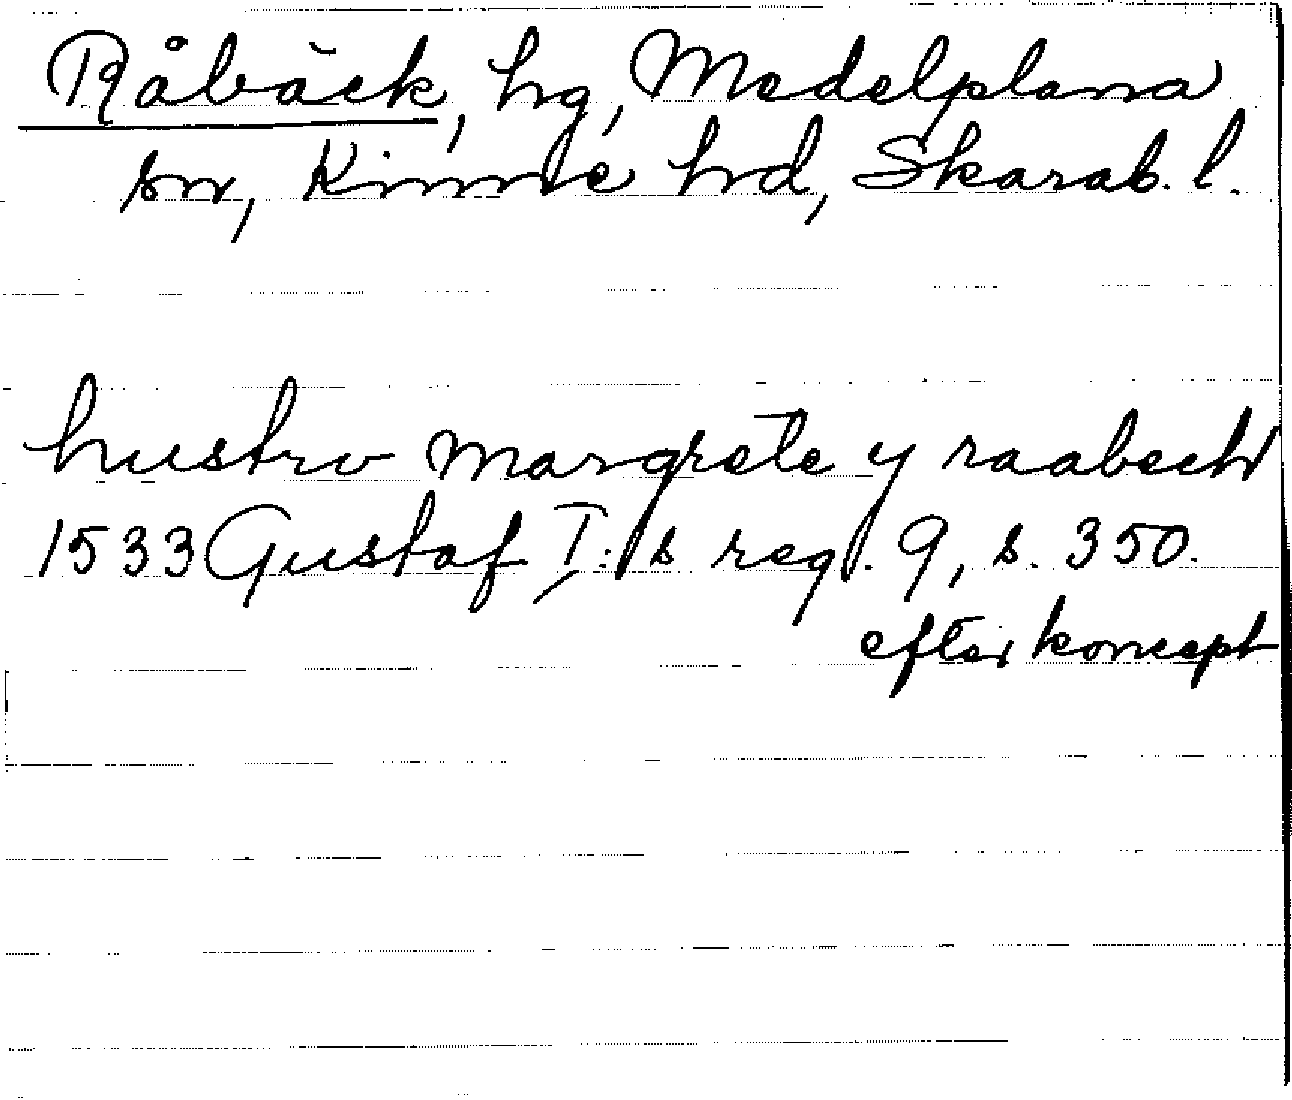 Råbäck, hg, Medelplana
sn, Kinne hd, Skarab. l.
hustrv margrete y raabeck
1533 Gustaf I:s reg. 9, s. 350.
efter koncept